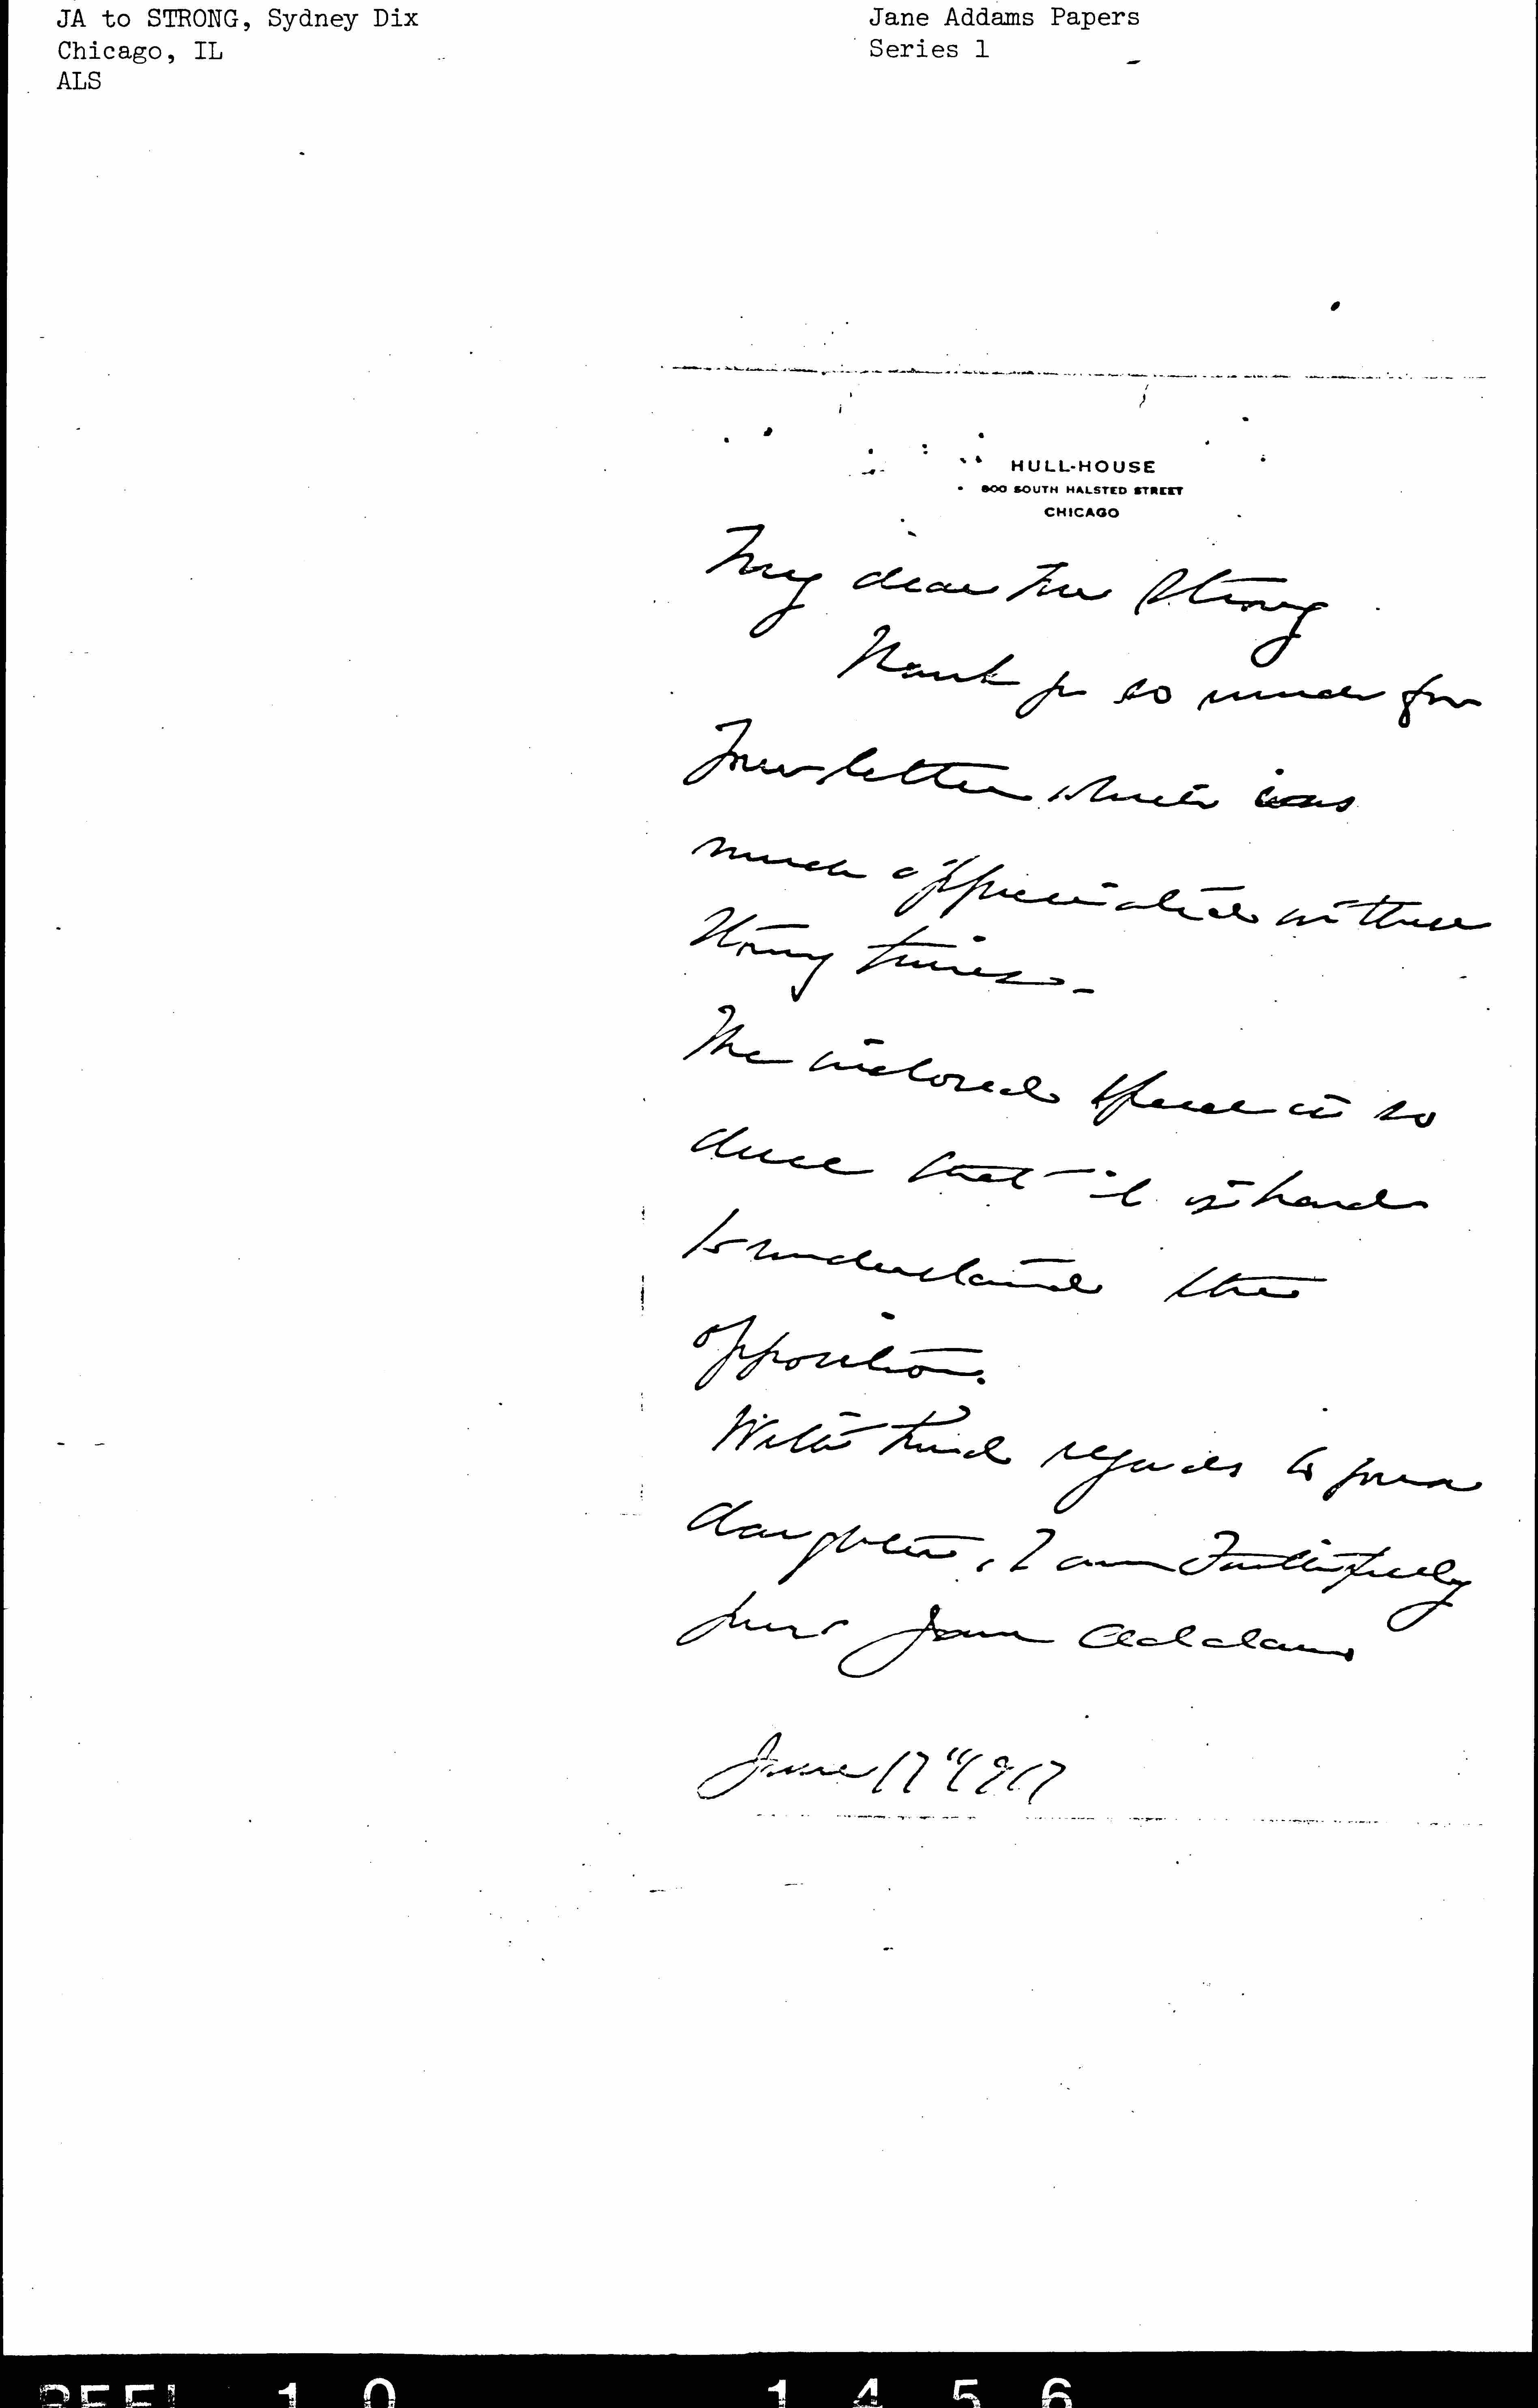 JA to STRONG, Sydney Dix
Chicago, IL
ALS
Jane Addams Papers
Series 1
HULL-HOUSE
800 SOUTH HALSTED STREET
CHICAGO
My dear Mr Strong
Thank you so much for
your letter which was
much appreciated in these
stormy times -
The inclosed speech is so
that it is hard
to understand the
opposition.
With kind regards to your
daughter, I am Faithfully
yours Jane Addams
June 17" 1917
REEL 10
1456